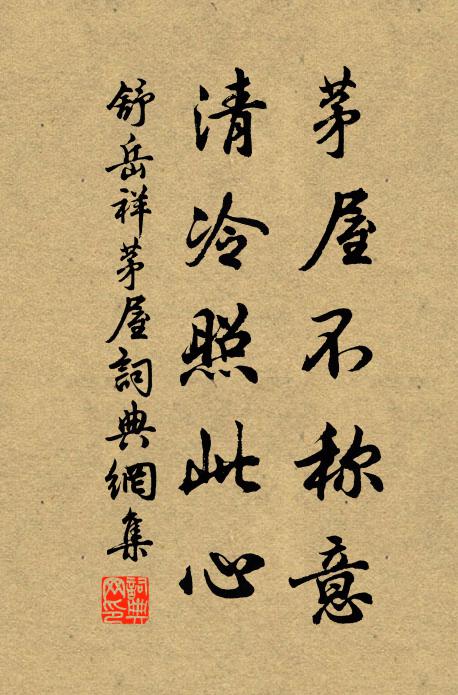 茅屋不称意
清冷照此心
舒岳祥茅屋詞典網集
詞典網印